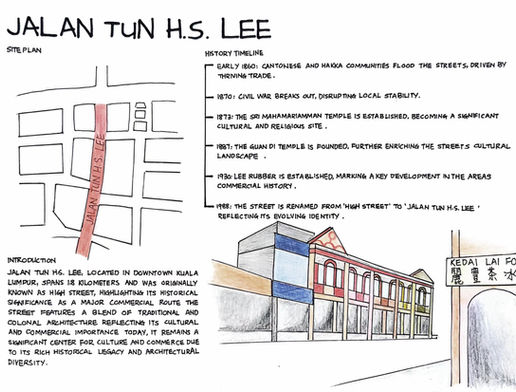 JALAN TUN H.S. LEE
SITE PLAN
JALAN TUN H.S. LEE
HISTORY TIMELINE
EARLY 1860: CANTONESE AND HAKKA COMMUNITIES FLOOD THE STREETS, DRIVEN BY
THRIVING TRADE.
1870: CIVIL WAR BREAKS OUT, DISRUPTING LOCAL STABILITY.
1873: THE SRI MAHAMARIAMMAN TEMPLE IS ESTABLISHED, BECOMING A SIGNIFICANT
CULTURAL AND RELIGIOUS SITE.
1887: THE GUAN DI TEMPLE IS FOUNDED, FURTHER ENRICHING THE STREET'S CULTURAL
LANDSCAPE.
1930: LEE RUBBER IS ESTABLISHED, MARKING A KEY DEVELOPMENT IN THE AREAS
COMMERCIAL HISTORY.
1988: THE STREET IS RENAMED FROM 'HIGH STREET' TO 'JALAN TUN H.S LEE'
REFLECTING ITS EVOLVING IDENTITY.
INTRODUCTION
JALAN TUN H.S. LEE, LOCATED IN DOWNTOWN KUALA
LUMPUR, SPANS 1.8 KILOMETERS AND WAS ORIGINALLY
KNOWN AS HIGH STREET, HIGHLIGHTING ITS HISTORICAL
SIGNIFICANCE AS A MAJOR COMMERCIAL ROUTE THE
STREET FEATURES A BLEND OF TRADITIONAL AND
COLONIAL ARCHITECTURE REFLECTING ITS CULTURAL
AND COMMERCIAL IMPORTANCE TODAY, IT REMAINS A
SIGNIFICANT CENTER FOR CULTURE AND COMMERCE DUE
TO ITS RICH HISTORICAL LEGACY AND ARCHITECTURAL
DIVERSITY.
KEDAI LAI FO
麗豐茶水